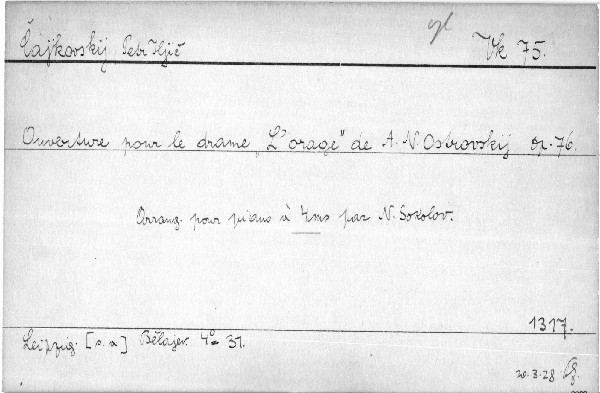 Čajkovskij Petr Iljič Vk 75.
Ouverture pour le drame „L'orage" de A. N. Ostrovskij op. 76.
Arrang. pour piano à 4ms par N. Sokolov.
1317.
Leipzig. [s. a] Bělajev. 4° 31.
20.3.28